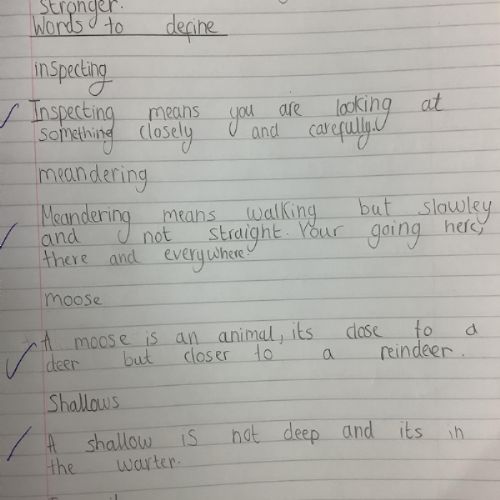 stronger.
Words to define
inspecting
Inspecting means you are looking at
something closely and carefully.
meandering
Meandering means walking but slowley
and not straight. Your going here,
there and everywhere.
moose
A moose is an animal, its close to a
deer but closer to a reindeer.
Shallows
A shallow is not deep and its in
the warter.